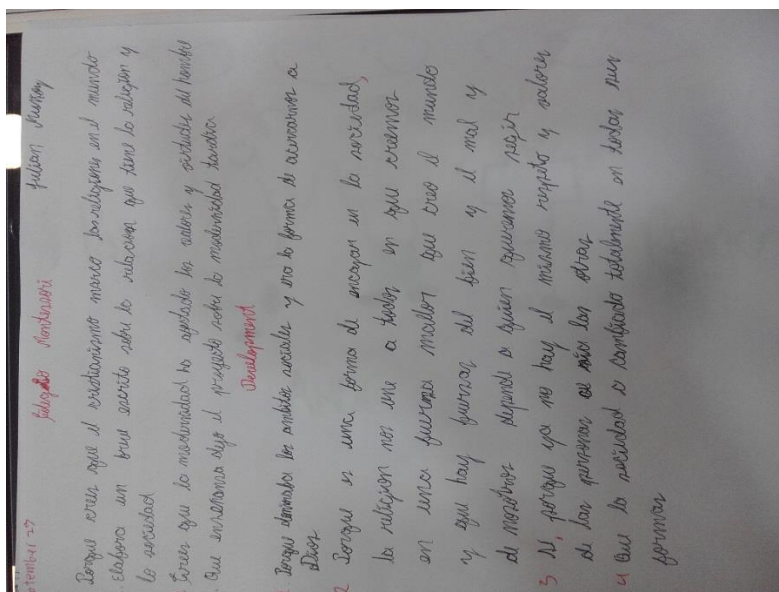 ptember 27 Colegio Montessori Julian Muñoz
Porque crees que el cristianismo marco las religiones en el mundo
. Elabora un breve escrito sobre la relacion que tiene la religion y
la sociedad
. Crees que la modernidad ha agotado los valores y virtudes del hombre
. Que enseñanza dejo el proyecto sobre la modernidad tardia
Development
Porque dominaba los ambitos sociales y era la forma de acercarnos a
Dios
2 Porque es una forma de encajar en la sociedad,
la religion nos une a todos en que creemos
en una fuerza mallor que creo el mundo
y que hay fuerzas del bien y el mal y
de nosotros depende a quien queremos segir
3 Si, porque ya no hay el mismo respeto y valores
de las personas acia las otras
4 Que la sociedad a cambiado totalmente en todas sus
formas